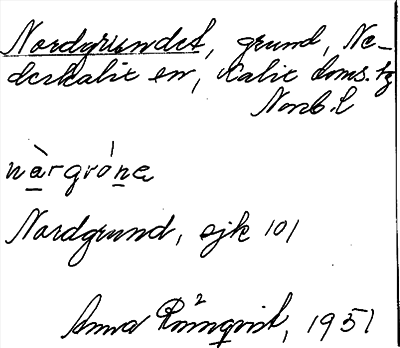 Nordgrundet, grund, Ne-
derkalix sn, Kalix doms. tg
Norrb. l
nàrgrónɐ
Nordgrund, sjk 101
Anna Rönnqvist, 1951